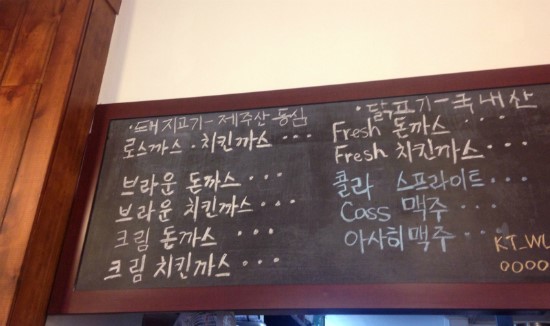 ·돼지고기-제주산 등심
로스까스·치킨까스···
브라운 돈까스···
브라운 치킨까스···
크림 돈까스 ···
크림 치킨까스···
·닭고기-국내산
Fresh 돈까스···
Fresh 치킨까스···
콜라 스프라이트···
Cass 맥주 ···
아사히맥주 ···
KT_WL
0000